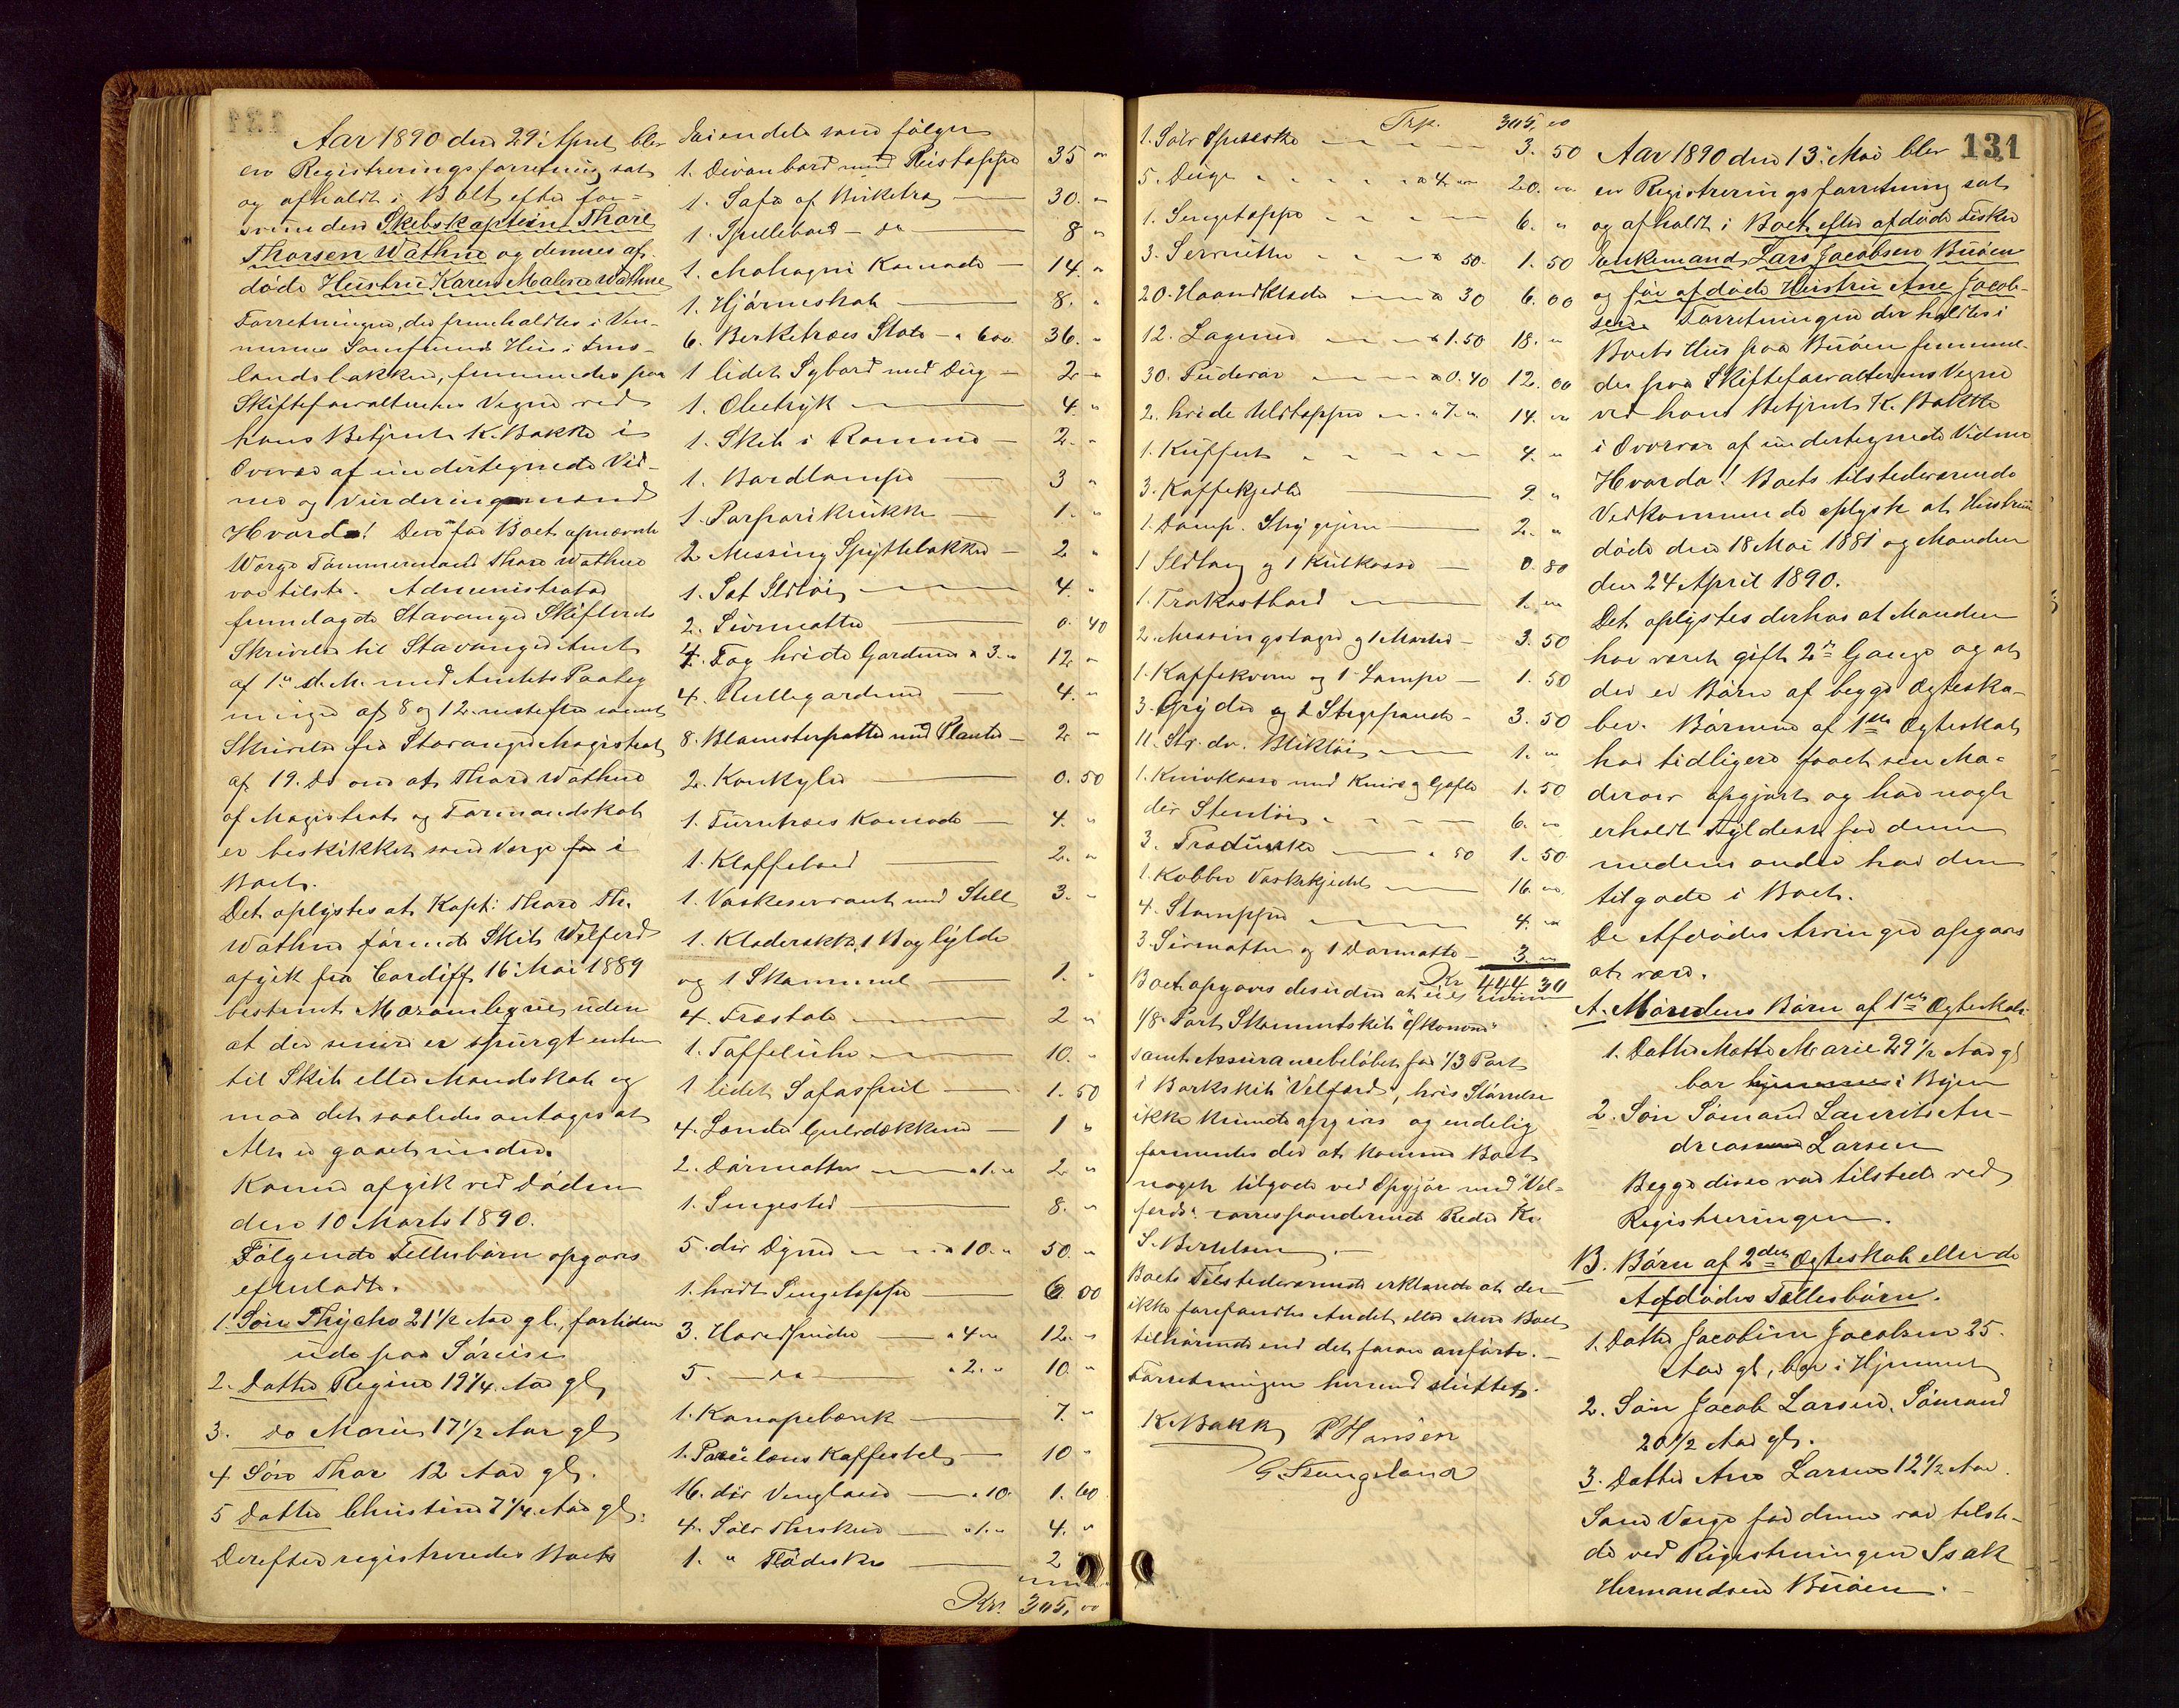 Aar 1890 den 29' April blev
en Registreringsforretning sat
og afholdt i Boet efter for-
svunden Skibskaptein Thore
Thorsen Wathne og dennes af-
døde Hustru Karen Malene Wathne
Forretningen, der fremholdtes i Ven-
nernes Samfunds Hus i
landsbakken, fremmedes paa
Skifteforvalterens Vegne ved
hans Betjent K. Bakke i
Overvær af undertegnede Vid-
ner og Vurderingsmænd
Hvorda! Den for Boet opnævnte
Værge Tømmermand Thore Wathne
var tilstede. Administrator
fremlagde Stavanger Skifterets
Skrivelse til Stavanger Amt
af 1ste d. M. med Amtets Paateg
ninger af 8 og 12 næstefter samt
Skrivelse fra Stavanger Magistrat
af 19. ds om at Thore Wathne
af Magistrat og Formandskab
er beskikket som Værge for i
Boet.
Det oplystes at Kapt: Thore Th.
Wathne førende Skib Velferd
afgik fra Cardiff 16' Mai 1889
bestemt uden
at der senere er spurgt enten
til Skib eller Mandskab og
maa det saaledes antages at
Alt er gaaet under.
Konen afgik ved Døden
den 10 Marts 1890.
Følgende Fællesbørn opgaves
efterladte.
1. Søn Thycho 21 1/2 Aar gl., fortiden
ude paa Søreise
2. Datter Regine 19 1/4 Aar gl
3. do Marie 17 1/2 Aar gl
4 Søn Thor 12 Aar gl.
5 Datter Christine 7 1/4 Aar gl.
Derefter registreredes Boets
Eiendele som følger
1. Divanbord med Reistæppe 35 "
1. Sofa af Birketræ 30. "
1. Spillebord - do 8 "
1. Mahogni Komode 14. "
1. Hjørneskab 8. "
6. Berketræes Stole - a 600 36. "
1 lidet Sybord med Dug 2 "
1. Olietryk 4. "
1. Skib i Ramme 2. "
1. Bordlampe 3 "
1. 1. "
2 Messing Spyttebakker 2 "
1. Sæt Ildtøi 4. "
2. Sivmatter 0. 40
4. Fag hvide Gardiner a 3. " 12 "
4. Rullegardiner 4. "
8. Blomsterpotter med Planter 2 "
2. Konkylier 0. 50
1. Furretræes Komode 4. "
1. Klaffebord 2. "
1. Vaskeservant med Stell 3. "
1. Kladerække, 1 Boghylde
og 1 Skammel 1. "
4. Træstole 2 "
1. Taffeluhr 10. "
1 lidet Sofaspeil 1. 50
4. Lænde Gulvdækkener 1 "
2. Dørmatter a 1. " 2 "
1. Sengested 8. "
5. div Dyner a 10. " 50. "
1. hvidt Sengetæppe 6 00
3. Hovedpuder a 4 " 12. "
5. - do - a 2. " 10. "
1. Kanapebænk 7. "
1. Porcelæns Kaffestel 10 "
16. div Vinglase a 10. 1. 60
4. Sølv Theskeer a 1. " 4. "
1. " Flødeske 2 "
Kr. 305, 00
Trp. 305, 00
1. Sølv Spiseske 3. 50
5. Duge a 4. " 20. "
1. Sengetæppe 6. "
3. Servietter a 50. 1. 50
20. Haandklæder a 30 6. 00
12. Lagener a 1.50 18. "
30. Pudevar a 0.40 12. 00
2. hvide Uldtæpper a 7. " 14. "
1. Kuffert 4. "
3. Kaffekjedler 9. "
1. Damp. Strygejern 2. "
1 Ildtang og 1 Kulkasse 0. 80
1. Frokostbord 1. "
2. Messingstager og 1 Morter 3. 50
1. Kaffekvern og 1 Lampe 1. 50
3. Gryder og 2 Stegepander 3. 50
11. Str. div. Bliktøi 1. "
1. Knivkasse med Knive og Gafler 1. 50
div Stentøi 6. "
3. a 50 1. 50
1. Kobber Vaskekjedel 16. "
4. Stamper 4. "
3. Sivmatter og 1 Dørmatte 3. "
Kr 444 30
Boet opgaves desuden at eie
1/8. Part Skonnertskib "Økonom"
samt Assurancebeløbet for 1/3 Part
i Barkskib "Velferd", hvis Størrelse
ikke kunde opgives og endelig
formentes der at komme Boet
noget tilgode ved Opgjør med "Vel-
ferds" corresponderende Reder Kr.
S. Bertelsen.
Boets Tilstedeværende erklærede at der
ikke forefandtes Andet eller Mere Boet
tilhørende end det foran anførte.
Forretningen hermed sluttet.
K. Bakke P Hansen
G. Tzangsland
131
Aar 1890 den 13. Mai blev
en Registreringsforretning sat
og afholdt i Boet efter afdøde Fisker
Enkemand Lars Jacobsen Buøen
og før afdøde Hustru Ane Jacob-
sen. Forretningen der holdtes i
Boets Hus paa Buøen fremme-
des paa Skifteforvalterens Vegne
ved hans Betjent K. Bakke
i Overvær af undertegnede Vidner
Hvorda! Boets tilstedeværende
Vedkommende oplyste at Hustruen
døde den 18 Mai 1881 og Manden
den 24 April 1890.
Det oplystes derhos at Manden
har været gift 2de Gange og at
der er Børn af begge Ægteska-
ber. Børnene af 1ste Ægteskab
har tidligere faaet sin Mo-
derarv opgjort og har nogle
erholdt Fyldest for denne
medens andre har den
tilgode i Boet.
De Afdødes Arvinger opgaves
at være.
A. Mandens Børn af 1ste Ægteskab
1. Datter Mette Marie 29 1/2 Aar gl
bor hjemme i Byen
2. Søn Sømand Laurits An-
dreas Larsen
Begge disse var tilstede ved
Registreringen.
B. Børn af 2det Ægteskab eller de
Afdødes Fællesbørn.
1. Datter Jacobine Jacobsen 25.
Aar gl, bor i Hjemmet
2. Søn Jacob Larsen, Sømand
20 1/2 Aar gl.
3. Datter Ane Larsen 12 1/2 Aar.
Som Værge for denne var tilste-
de ved Registreringen Isak
Hermandsen Buøen.